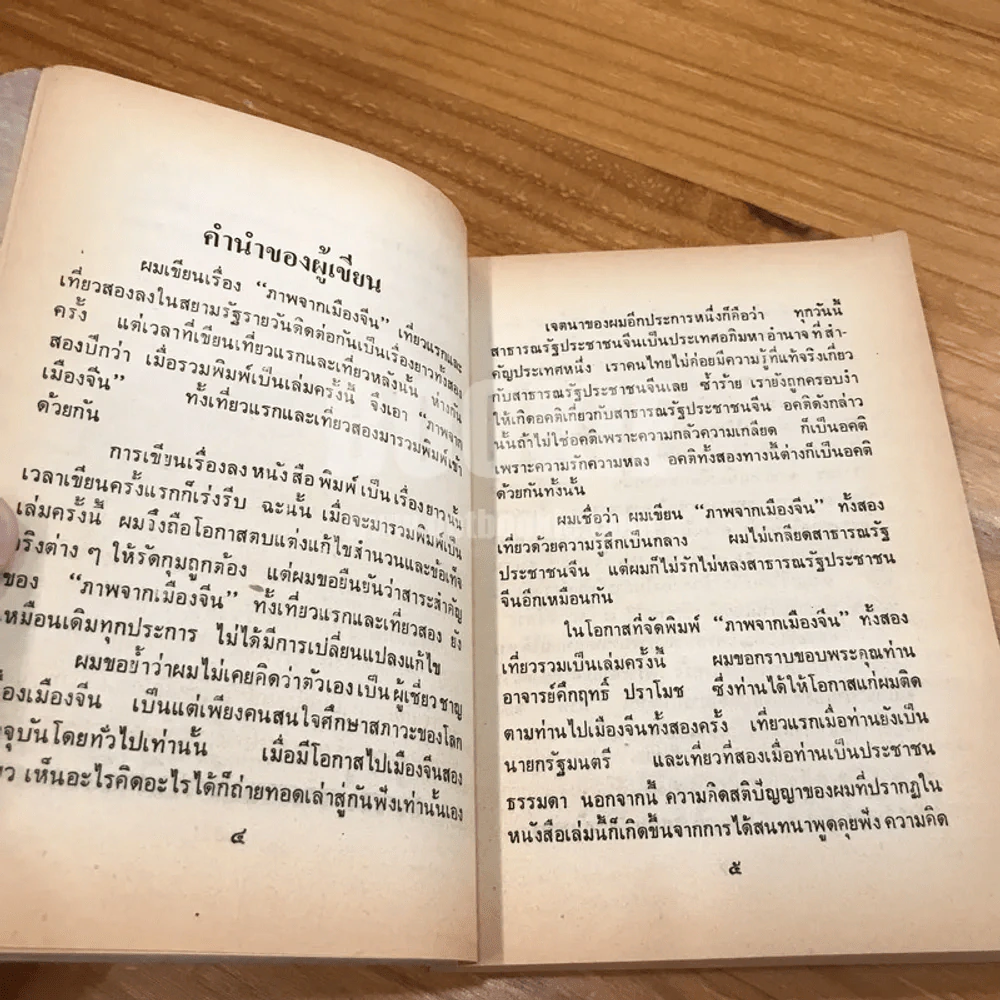 คำนำของผู้เขียน
ผมเขียนเรื่อง “ภาพจากเมืองจีน” เที่ยวแรกและ
เที่ยวสองลงในสยามรัฐรายวันติดต่อกันเป็นเรื่องยาวทั้งสอง
ครั้ง แต่เวลาที่เขียนเที่ยวแรกและเที่ยวหลังนั้น ห่างกัน
สองปีกว่า เมื่อรวมพิมพ์เป็นเล่มครั้งนี้ จึงเอา “ภาพจาก
เมืองจีน” ทั้งเที่ยวแรกและเที่ยวสองมารวมพิมพ์เข้า
ด้วยกัน
การเขียนเรื่องลงหนังสือพิมพ์เป็นเรื่องยาวนั้น
เวลาเขียนครั้งแรกก็เร่งรีบ ฉะนั้น เมื่อจะมารวมพิมพ์เป็น
เล่มครั้งนี้ ผมจึงถือโอกาสตบแต่งแก้ไขสำนวนและข้อเท็จ
จริงต่าง ๆ ให้รัดกุมถูกต้อง แต่ผมขอยืนยันว่าสาระสำคัญ
ของ “ภาพจากเมืองจีน” ทั้งเที่ยวแรกและเที่ยวสอง ยัง
เหมือนเดิมทุกประการ ไม่ได้มีการเปลี่ยนแปลงแก้ไข
ผมขอย้ำว่าผมไม่เคยคิดว่าตัวเองเป็นผู้เชี่ยวชาญ
เรื่องเมืองจีน เป็นแต่เพียงคนสนใจศึกษาสภาวะของโลก
ปัจจุบันโดยทั่วไปเท่านั้น เมื่อมีโอกาสไปเมืองจีนสอง
เห็นอะไรคิดอะไรได้ก็ถ่ายทอดเล่าสู่กันฟังเท่านั้นเอง
๔
เจตนาของผมอีกประการหนึ่งก็คือว่า ทุกวันนี้
สาธารณรัฐประชาชนจีนเป็นประเทศอภิมหาอำนาจที่สำ-
คัญประเทศหนึ่ง เราคนไทยไม่ค่อยมีความรู้ที่แท้จริงเกี่ยว
กับสาธารณรัฐประชาชนจีนเลย ซ้ำร้าย เรายังถูกครอบงำ
ให้เกิดอคติเกี่ยวกับสาธารณรัฐประชาชนจีน อคติดังกล่าว
นั้นถ้าไม่ใช่อคติเพราะความกลัวความเกลียด ก็เป็นอคติ
เพราะความรักความหลง อคติทั้งสองทางนี้ต่างก็เป็นอคติ
ด้วยกันทั้งนั้น
ผมเชื่อว่า ผมเขียน “ภาพจากเมืองจีน” ทั้งสอง
เที่ยวด้วยความรู้สึกเป็นกลาง ผมไม่เกลียดสาธารณรัฐ
ประชาชนจีน แต่ผมก็ไม่รักไม่หลงสาธารณรัฐประชาชน
จีนอีกเหมือนกัน
ในโอกาสที่จัดพิมพ์ “ภาพจากเมืองจีน” ทั้งสอง
เที่ยวรวมเป็นเล่มครั้งนี้ ผมขอกราบขอบพระคุณท่าน
อาจารย์คึกฤทธิ์ ปราโมช ซึ่งท่านได้ให้โอกาสแก่ผมติด
ตามท่านไปเมืองจีนทั้งสองครั้ง เที่ยวแรกเมื่อท่านยังเป็น
นายกรัฐมนตรี และเที่ยวที่สองเมื่อท่านเป็นประชาชน
ธรรมดา นอกจากนี้ ความคิดสติปัญญาของผมที่ปรากฏใน
หนังสือเล่มนี้ก็เกิดขึ้นจากการได้สนทนาพูดคุยฟังความคิด
๕